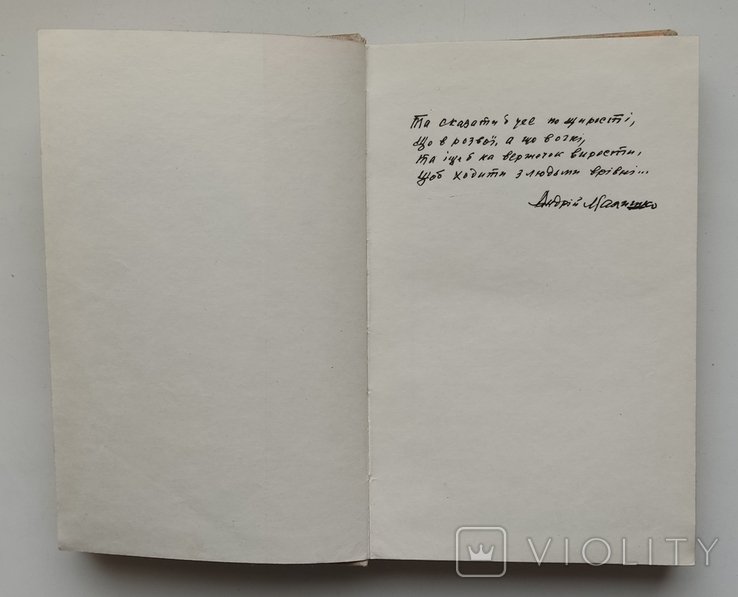 Та сказати б усе по щирості,
Що в розвої, а що в
Та іще б на вершочок вирости,
Щоб ходити з людьми врівні...
Андрій Малишко
VIOLITY